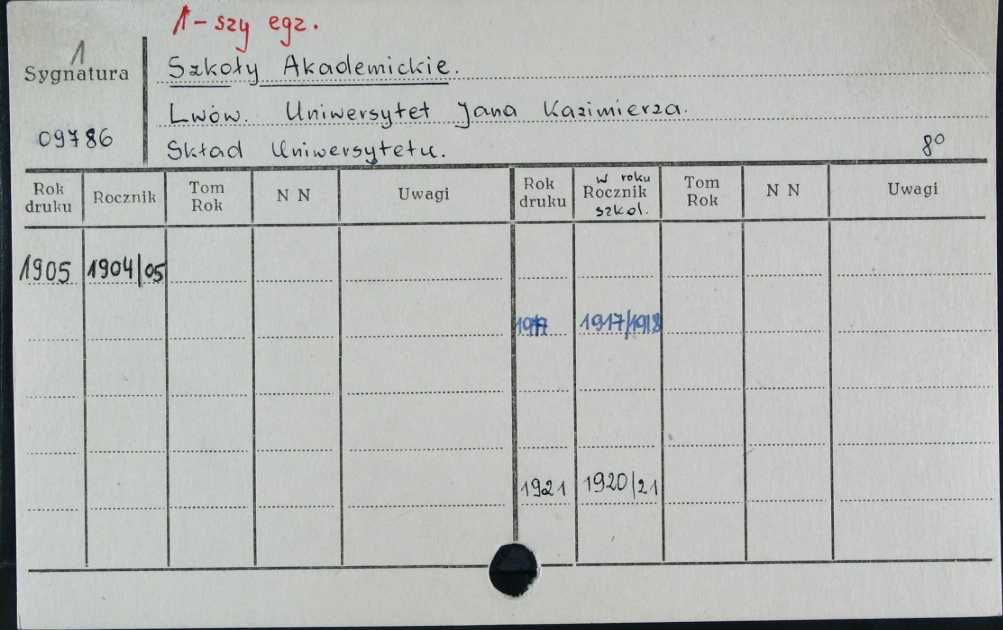 1-szy egz.
1
Sygnatura
Szkoły Akademickie.
Lwów. Uniwersytet Jana Kazimierza.
09786
Skład Uniwersytetu. 8º
Rok druku Rocznik Tom Rok N N Uwagi Rok druku w roku Rocznik szkol. Tom Rok N N Uwagi
1905 1904/05
1917/1918
1921 1920/21